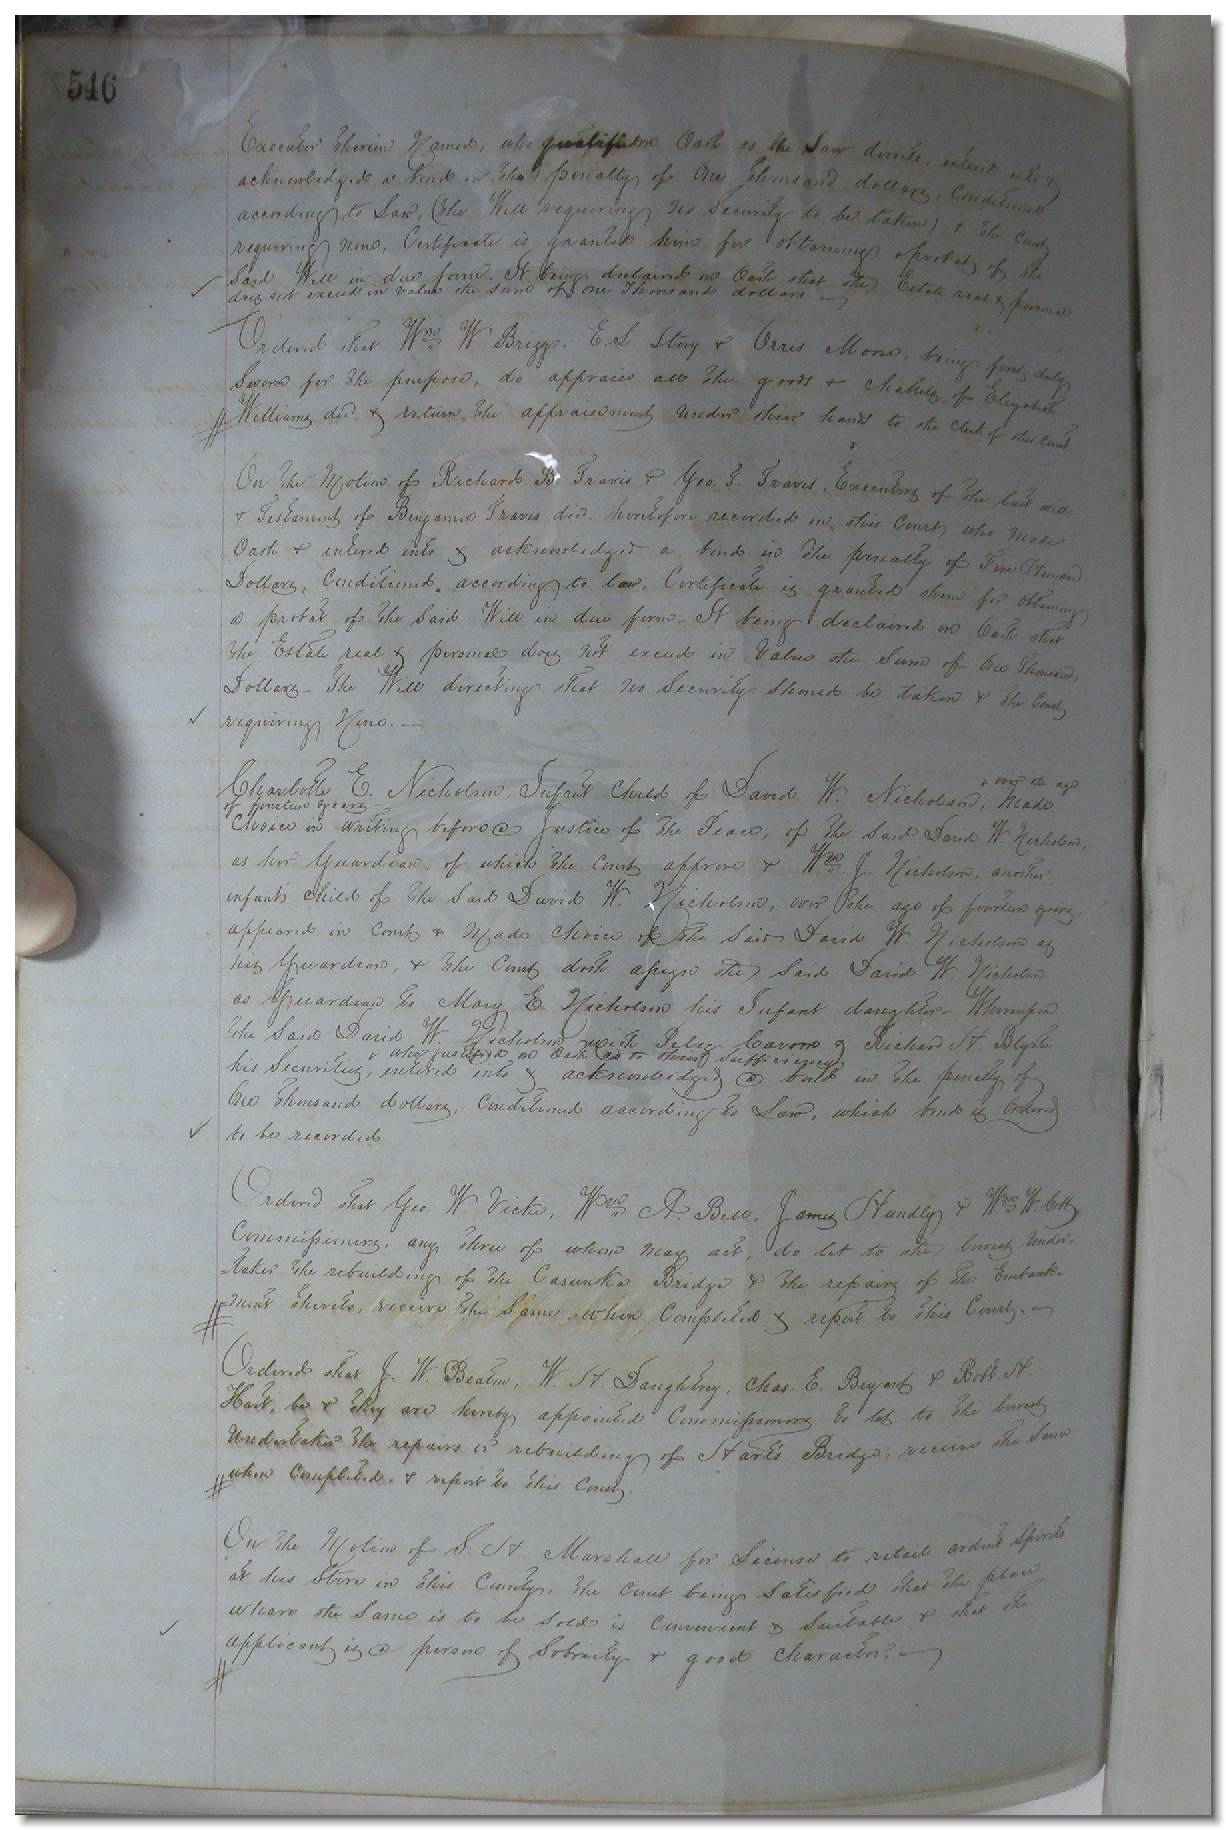 546
Executor therein Named, who made Oath as the Law directs, entered into &
acknowledged a bond in the penalty of One Thousand dollars, Conditioned
according to Law, (the Will requiring no security to be taken) & the Court
requiring none, Certificate is granted him for obtaining a probat of the
Said Will in due form. It being declaired on Oath that the Estate real & personal
does not exceed in value the sum of one Thousand dollars
Ordered that Wm W Briggs, E. S. Story & Orris Moore, being first duly
Sworn for the purpose, do appraise all the goods & chattels of Elizabeth
Williams dec. & return the appraisement under their hands to the Clerk of this Court
On the Motion of Richard B. Travis & Geo. T. Travis, Executors of the last will
& Testament of Benjamin Travis decd. heretofore recorded in this Court, who made
Oath & entered into & acknowledged a bond in the penalty of Five Thousand
Dollars, Conditioned according to law, Certificate is granted them for obtaining
a probat of the Said Will in due form. It being declaired on Oath that
the Estate real & personal does not exceed in Value the Sum of One Thousand
Dollars - The Will directing that no Security Should be taken & the Court
requiring None. —
Charlotte E. Nicholson Infant Child of David W. Nicholson, over the age
of fourteen years made
Choice in writing before a Justice of the Peace, of the Said David W. Nicholson,
as her Guardian, of which the Court approve & Wm J. Nicholson, another
infant child of the Said David W. Nicholson, over the age of fourteen years,
appeared in Court & Made Choice of the Said David W. Nicholson as
his Guardian, & the Court doth assign the Said David W. Nicholson
as Guardian to Mary E. Nicholson his Infant daughter - Whereupon
the Said David W. Nicholson with & Richard H. Blythe
& who justified on Oath as to their sufficiency
his Securities, entered into & acknowledged a bond in the penalty of
One thousand dollars, Conditioned according to Law, which bond is Ordered
to be recorded
Ordered that Geo. W Vicke, Wm A. Bell, James Hundley & Wm W.
Commissioners, any three of whom may act, do let to the lowest under-
-taker the rebuilding of the Bridge & the repairs of the Embank-
-ment thereto, receive the Same when Completed & report to this Court. —
Ordered that J. W. Beaton, W. H. Daughtrey, Chas. E. Bryant & Robt. H.
Hart, be & they are hereby appointed Commissioners to let to the lowest
Undertaker the repairs or rebuilding of Harts Bridge, receive the Same
when Completed, & report to this Court.
On the Motion of S. H. Marshall for License to retail ardent Spirits
at his Store in this County, the Court being Satisfied that the place
where the Same is to be Sold is Convenient & Suitable & that the
applicant is a person of Sobriety & good character. —